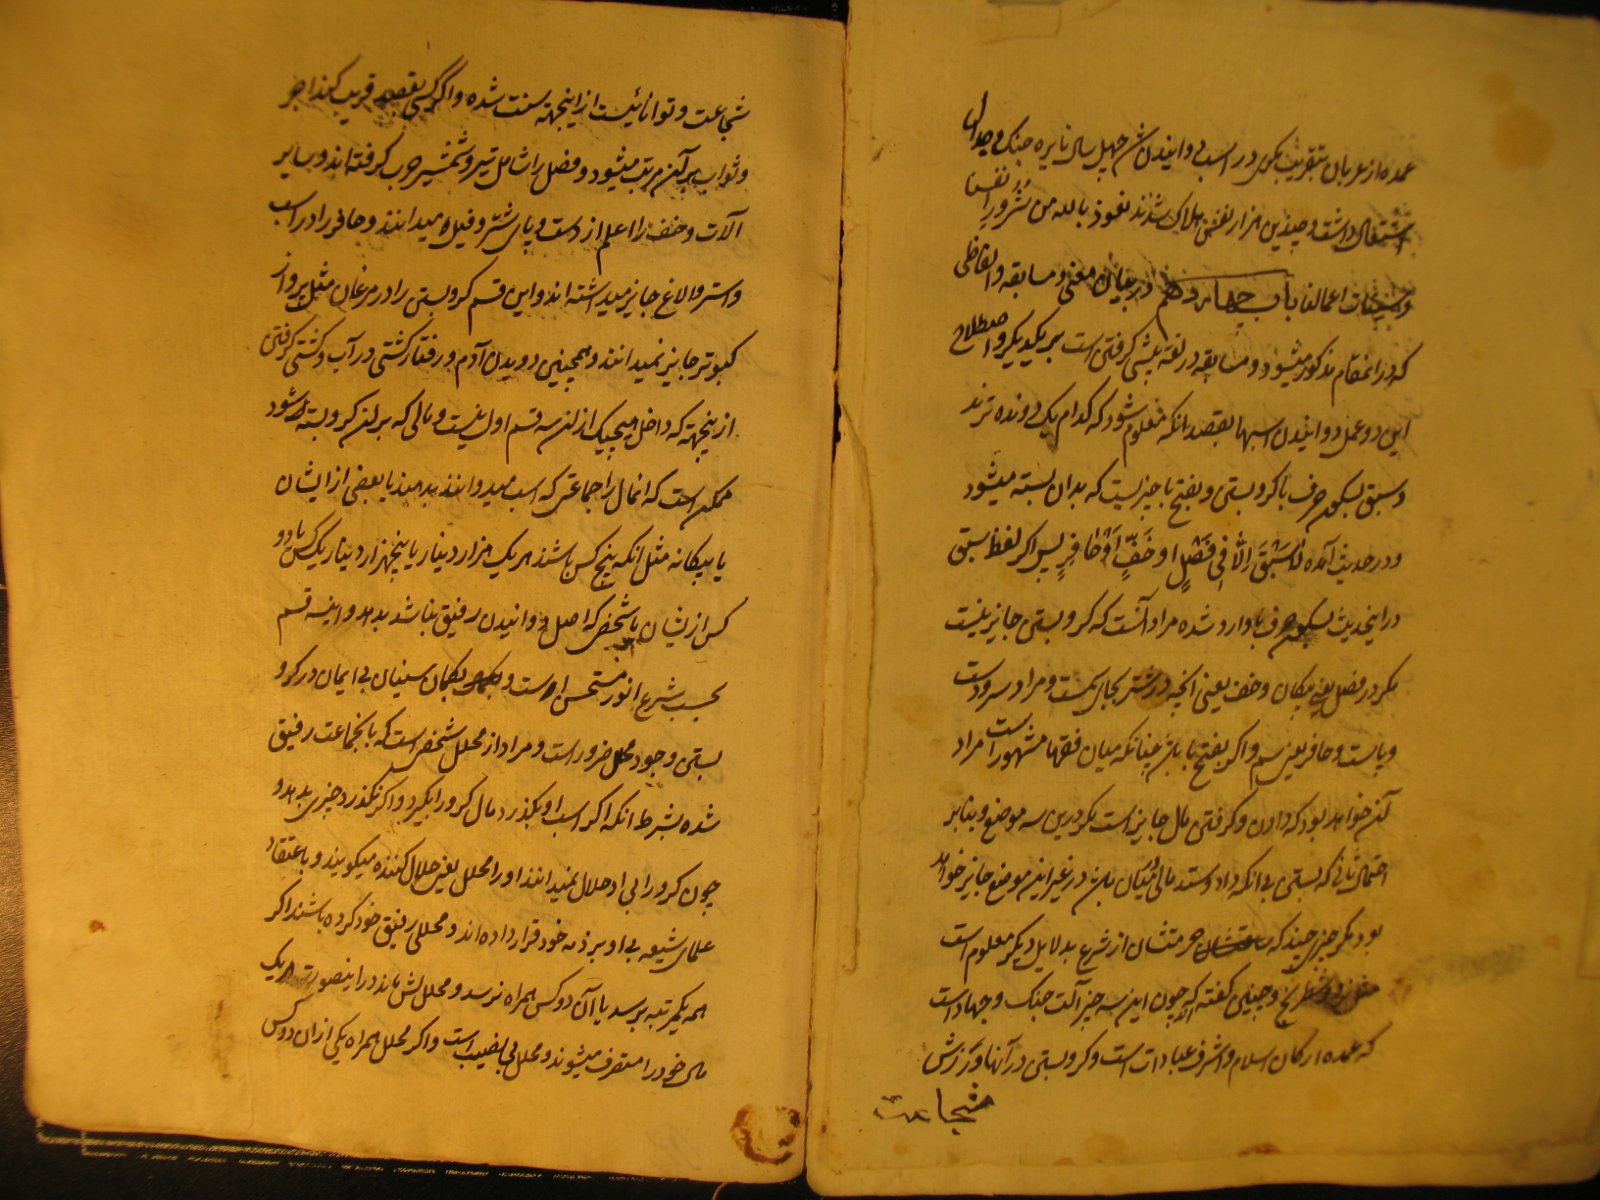 عمده از عربان بتقریب یکی در اسب دوانیدن شش چهل سال نایره جنک و جدال
اشتعال داشت و چندین هزار نفس هلاک شدند نعوذ بالله من شرور انفسنا
و سیئات اعمالنا باب چهاردهم در بیان معنی مسابقه و الفاظی
که در اینمقام مذکور میشود و مسابقه در لغة پیشی کرفتن است بر یکدیکر و اصطلاح
این دو عمل دوانیدن اسبها بقصد انکه معلوم شود که کدام یک دونده ترند
و سبق بسکون حرف با کرو بستن و بفتح با چیزیست که بدان بسته میشود
و در حدیث آمده لا سَبَقَ اِلّا فی نَصْلٍ او خُفٍّ اَوْ حافِرٍ پس اکر لفظ سبق
در اینحدیث بسکون حرف با وارد شده مراد آنست که کرو بستن جایز نیست
مکر در نصل یعنی پیکان و خف یعنی انچه در شتر بجای سمست و مراد سر دست
و پاست و حافر یعنی سم و اکر بفتح با باشد چنانکه میان فقها مشهور است مراد
آن خواهد بود که دادن و کرفتن مال جایز است مکر درین سه موضع و بنابر
احتمال ثانی کرو بستن بی انکه داد و ستد مالی در میان باشد در غیر این موضع جایز خواهد
بود مکر چیزی چند که حرمتشان از شرع بدلایل دیکر معلوم است
مثل نرد و شطرنج و چنین کفته اند که چون این سه چیز آلت جنک و جهاد است
که عمده ارکان اسلام و اشرف عبادات است و کرو بستن در آنها ورزش
شجاعت
شجاعت و توانائیست از اینجهة سنت شده و اکر کسی بقصد قربت کند اجر
و ثواب بر آن مترتب میشود و نصل را شامل تیر و شمشیر و حرب کرفته اند و سایر
آلات و خف را اعم از دست و پای شتر و فیل میدانند و حافر را در اسب
و استر و الاغ جایز میداشته اند و این قسم کرو بستن را در مرغان مثل پرواز
کبوتر جایز نمیدانند و همچنین دویدن آدم و رفتار کشتی در آب و کشتی کرفتن
از اینجهة که داخل هیچیک از آن سه قسم اول نیست و مالی که بر آن کرو بسته میشود
ممکن است که انمال را جماعتی که اسب میدوانند بدهند یا بعضی از ایشان
یا بیکانه مثل انکه پنج کس باشند هر یک هزار دینار یا پنجهزار دینار یک کس یا دو
کس از ایشان یا شخصی که اصل در دوانیدن رفیق نباشد بدهد و اینسه قسم
بحسب شرع انور مستحسن است و بکمان سنیان بی ایمان در کرو
بستن وجود محلل ضرور است و مراد از محلل شخصی است که با انجماعت رفیق
شده بشرط انکه اکر اسب او بکذرد مال کرو را بکیرد و اکر نکذرد چیزی ندهد و
چون کرو را بی او حلال نمیدانند او را محلل یعنی حلال کننده میکویند و باعتقاد
علمای شیعه بی او بر ذمه خود قرار داده اند و محللی رفیق خود کرده باشند اکر
همه یکمرتبه برسد یا آن دو کس همراه برسد و محلل پس ماند در اینصورت هر یک
مال خود را متصرف میشوند و محلل بی نصیب است و اکر محلل همراه یکی از ان دو کس